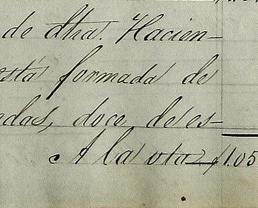 de dha. Hacien-
osta formada de
adas, doce de es-
A la vta $1.05